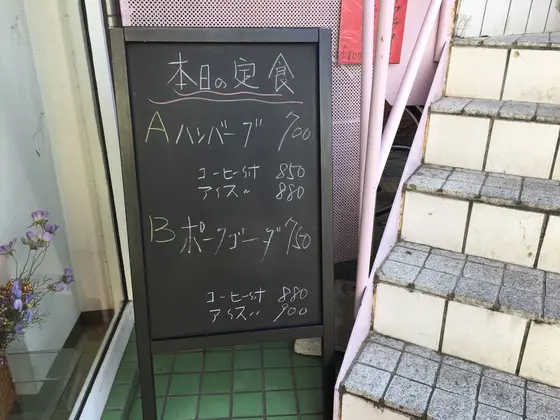 本日の定食
A ハンバーグ 700
コーヒー付 850
アイス〃 880
B ポークゴーダ 750
コーヒー付 880
アイス〃 900